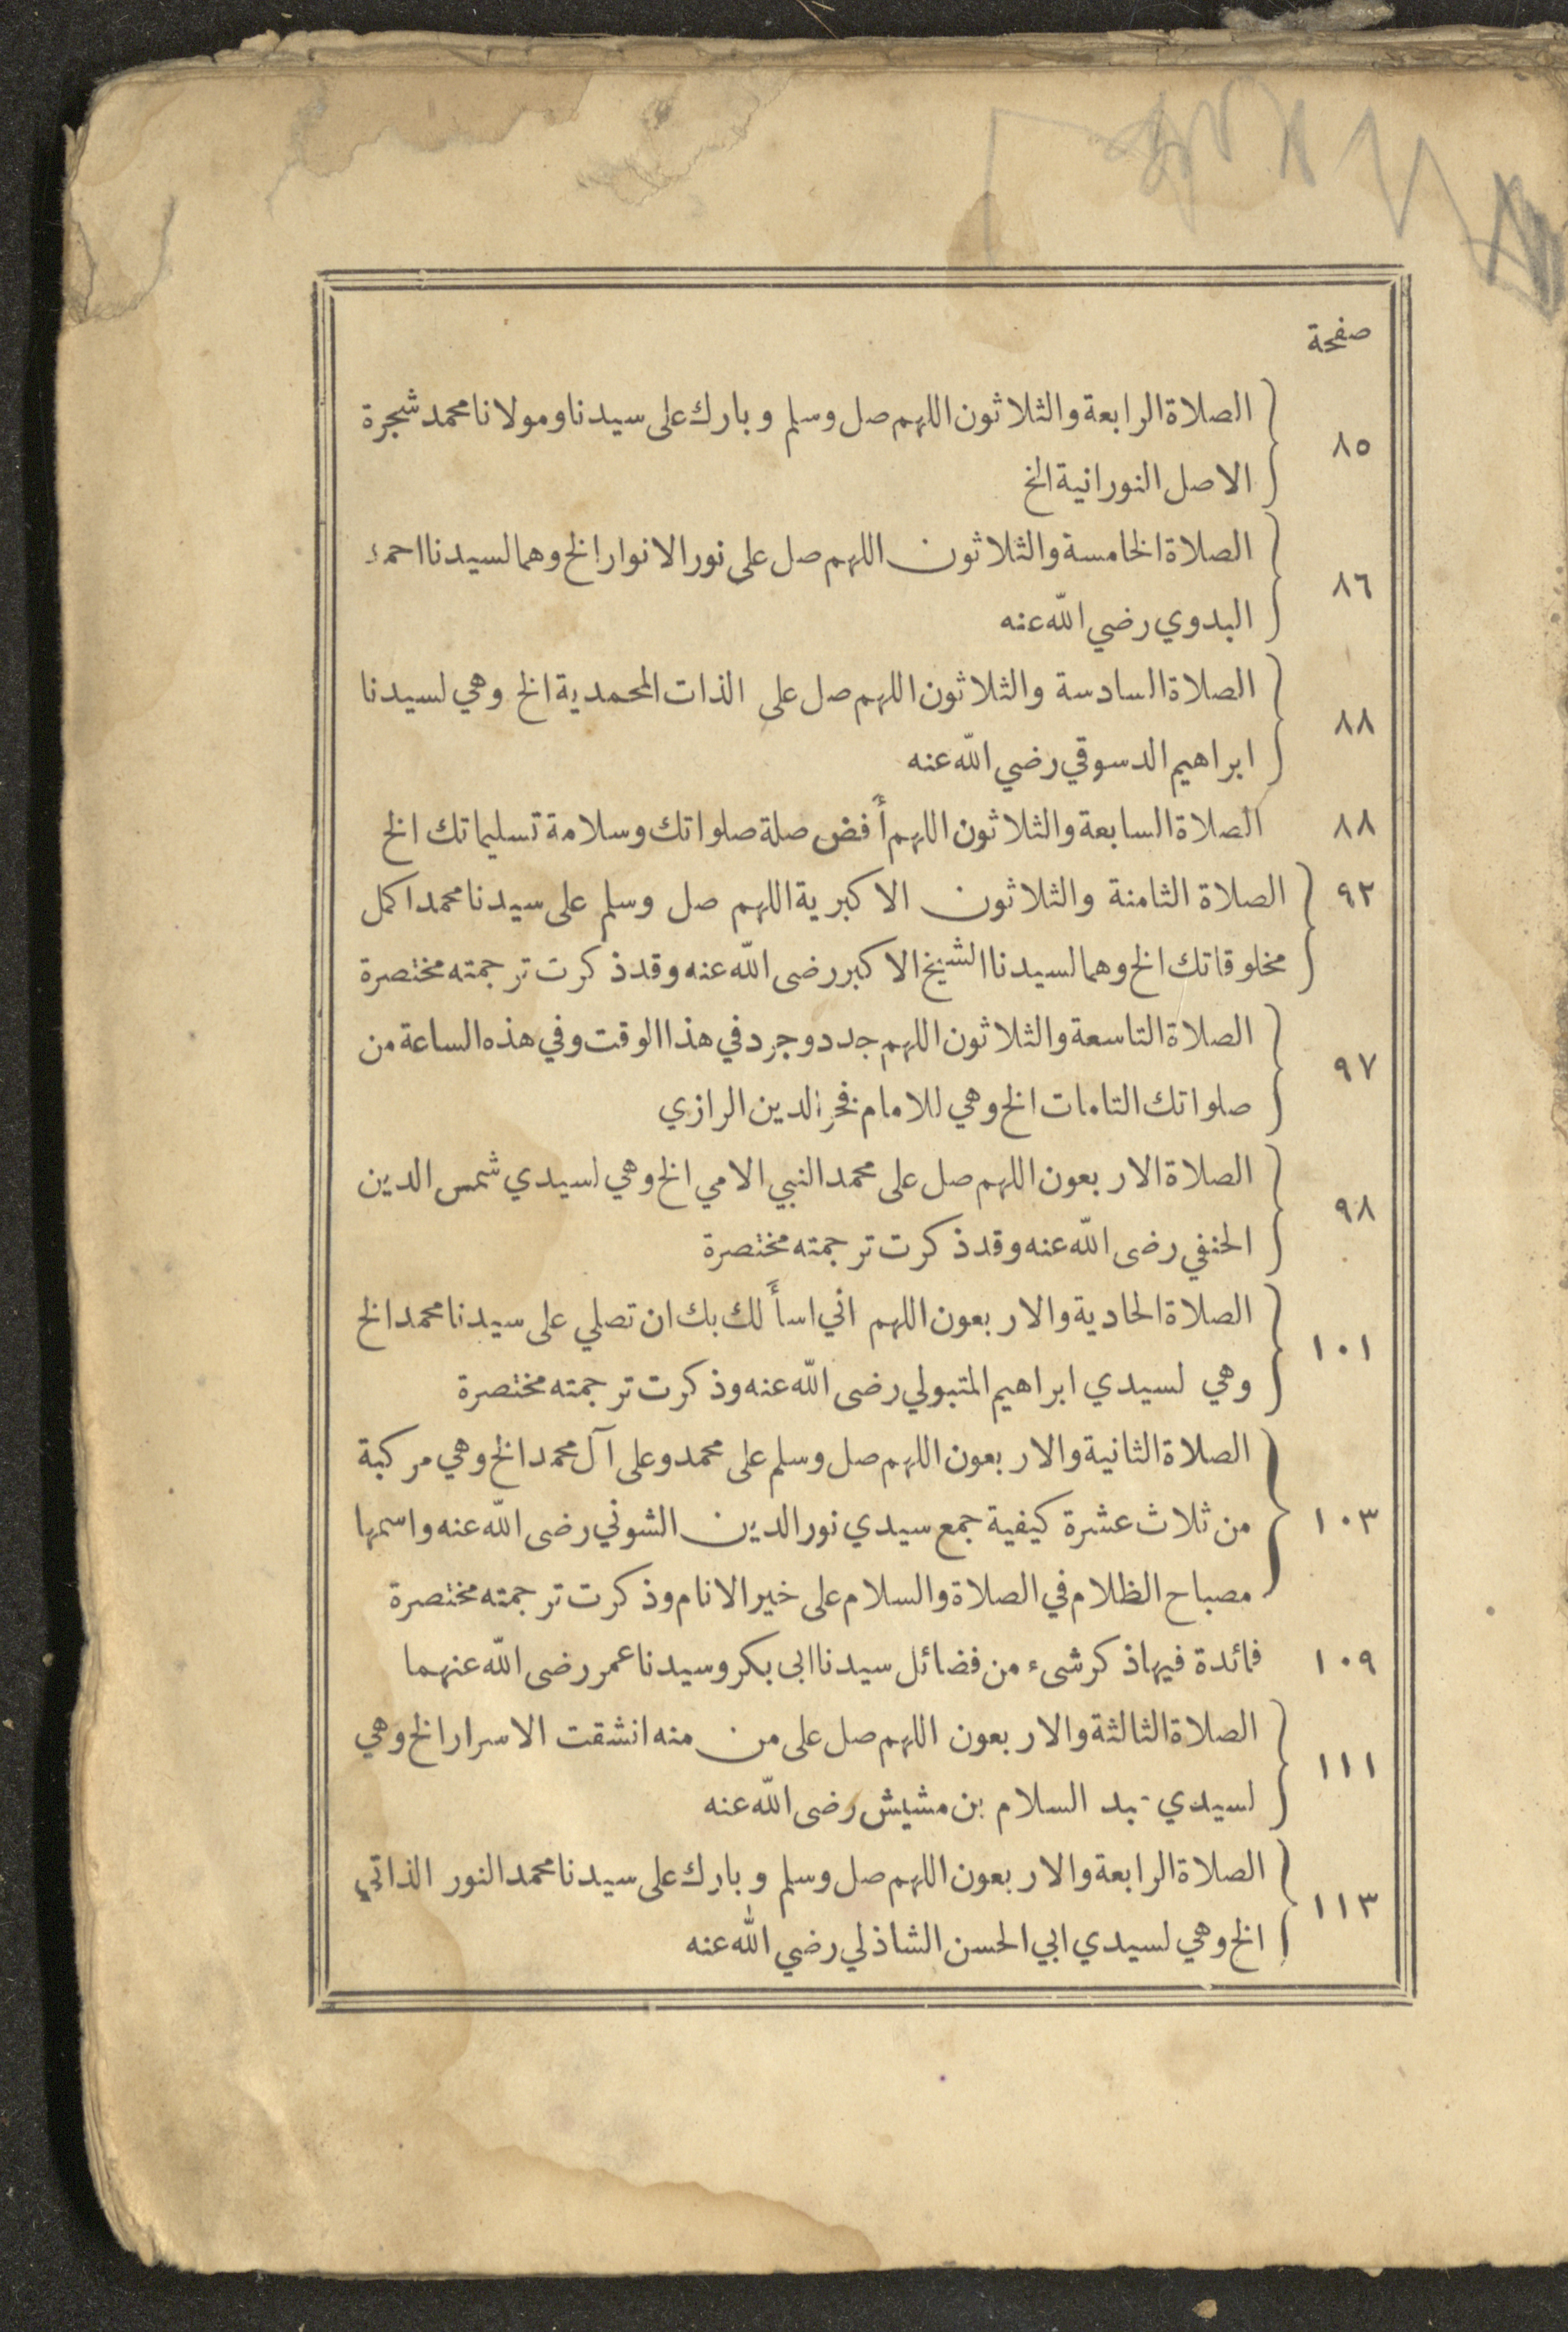 صفحة
الصلاة الرابعة والثلاثون اللهم صل وسلم وبارك على سيدنا ومولانا محمد شجرة
٨٥
الاصل النورانية الخ
الصلاة الخامسة والثلاثون اللهم صل على نور الانوار الخ وهما لسيدنا احمد
٨٦
البدوي رضي الله عنه
الصلاة السادسة والثلاثون اللهم صل على الذات المحمدية الخ وهي لسيدنا
٨٨
ابراهيم الدسوقي رضي الله عنه
٨٨ الصلاة السابعة والثلاثون اللهم أفض صلة صلواتك وسلامة تسليماتك الخ
٩٢ الصلاة الثامنة والثلاثون الاكبرية اللهم صل وسلم على سيدنا محمد اكمل
مخلوقاتك الخ وهما لسيدنا الشيخ الاكبر رضى الله عنه وقد ذكرت ترجمته مختصرة
الصلاة التاسعة والثلاثون اللهم جدد وجرد في هذا الوقت وفي هذه الساعة من
٩٧
صلواتك التامات الخ وهي للامام فخر الدين الرازي
الصلاة الاربعون اللهم صل على محمد النبي الامي الخ وهي لسيدي شمس الدين
٩٨
الحنفي رضى الله عنه وقد ذكرت ترجمته مختصرة
الصلاة الحادية والاربعون اللهم اني اسأ لك بك ان تصلي على سيدنا محمد الخ
١٠١
وهي لسيدي ابراهيم المتبولي رضى الله عنه وذكرت ترجمته مختصرة
الصلاة الثانية والاربعون اللهم صل وسلم على محمد وعلى آل محمد الخ وهي مركبة
١٠٣ من ثلاث عشرة كيفية جمع سيدي نور الدين الشوني رضى الله عنه واسمها
مصباح الظلام في الصلاة والسلام على خير الانام وذكرت ترجمته مختصرة
١٠٩ فائدة فيها ذكر شىء من فضائل سيدنا ابى بكر وسيدنا عمر رضى الله عنهما
الصلاة الثالثة والاربعون اللهم صل على من منه انشقت الاسرار الخ وهي
١١١
لسيدي عبد السلام بن مشيش رضى الله عنه
الصلاة الرابعة والاربعون اللهم صل وسلم وبارك على سيدنا محمد النور الذاتي
١١٣
الخ وهي لسيدي ابي الحسن الشاذلي رضي الله عنه